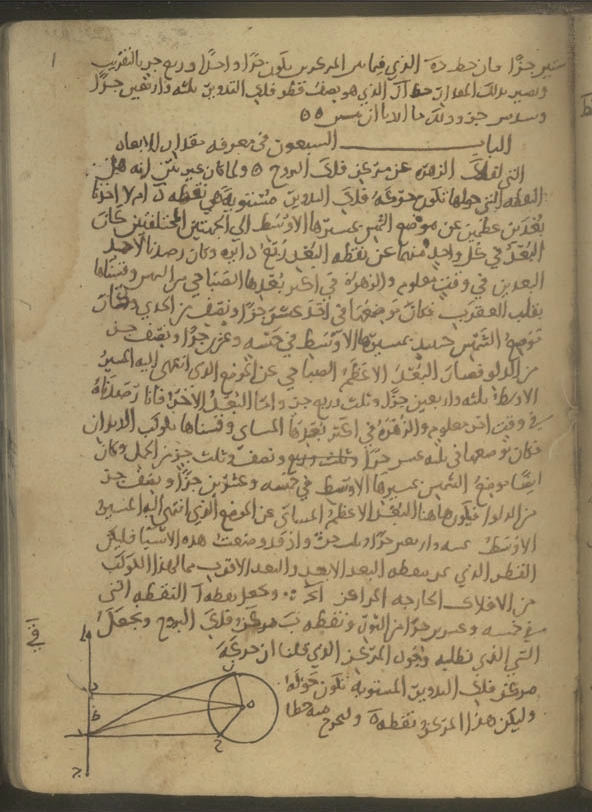 ستين جزءًا فان خط دة الذي فيما بين المركزين يكون جزءًا واحدًا وربع جزء بالتقريب
وتصير بذلك المقدار خط اا الذي هو نصف قطر فلك التدوير ثلثه واربعين جزءًا
وسدس جزء وذلك ما اردنا ان نبين ٥٥
الباب السبعون في معرفه مقدار الابعاد
التي لفلك الزهره عن مركز فلك البروج ٥ ولما كان غير بين انه هل
النقطه التي حولها تكون حركة فلك التدوير مستويه هي نقطه د ام لا اخذنا
بعدين عظيمين عن موضع الشمس بمسيرها الاوسط الى الجهتين المختلفتين كان
البعد في كل واحد منهما عن نقطه البعد ربع دايره وكان رصدنا لاحد
البعدين في وقت معلوم والزهرة في اكثر بعدها الصباحي من الشمس وقسناها
بقلب العقرب فكان موضعها في احد عشر جزءًا ونصف من الجدي وكان
موضع الشمس حينيذ بمسيرها الاوسط في خمسه وعشرين جزءًا ونصف جزء
من الدلو فصار البعد الاعظم الصباحي عن الموضع الذي انتهى اليه المسير
الاوسط ثلثه واربعين جزءًا وثلث وربع جزء واما البعد الاخر فانا رصدناه
في وقت اخر معلوم والزهرة في اكثر بعدها المسائي وقسناها بكوكب الدبران
فكان موضعها في ثلثه عشر جزءًا ونصف وثلث جزء من الحمل وكان
ايضًا موضع الشمس بمسيرها الاوسط في خمسه وعشرين جزءًا ونصف جزء
من الدلو فيكون هاهنا البعد الاعظم المسائي عن الموضع الذي انتهى اليه المسير
الاوسط ثمنيه واربعين جزءًا وثلث جزء واذ قد وضعت هذه الاشيا فليكن
القطر الذي يمر بنقطه البعد الابعد والبعد الاقرب مما لهذا الكوكب
من الافلاك الخارجه المراكز اج ونجعل نقطه آ النقطه التي
في خمسه وعشرين جزءًا من الثور ونقطه ب مركز فلك البروج ونجعل
الشي الذي نطلبه وجود المركز الذي قلنا ان حركة
مركز فلك التدوير المستويه تكون حوله
وليكن هذا المركز نقطة د ولنخرج منه خطا
في